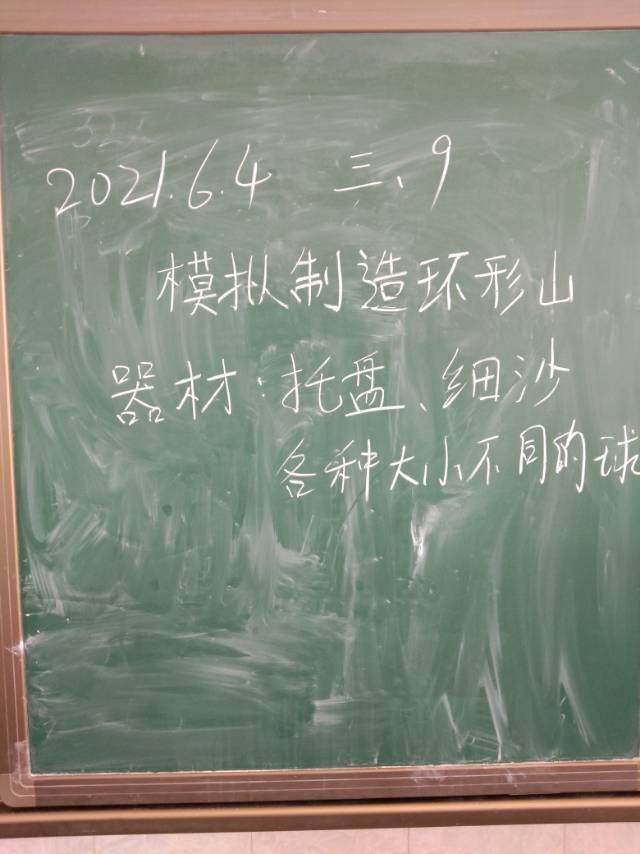 2021.6.4 三、9
模拟制造环形山
器材:托盘、细沙
各种大小不同的球